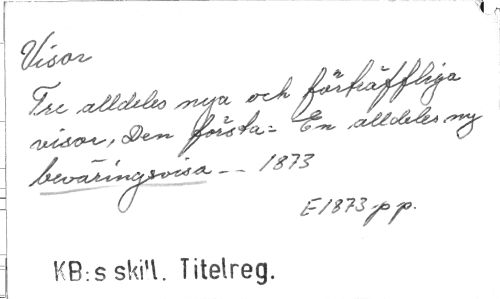 Visor
Tre alldeles nya och förträffliga
visor, Den första: En alldeles ny
beväringsvisa -- 1873
E1873 pp.
KB:s skill. Titelreg.